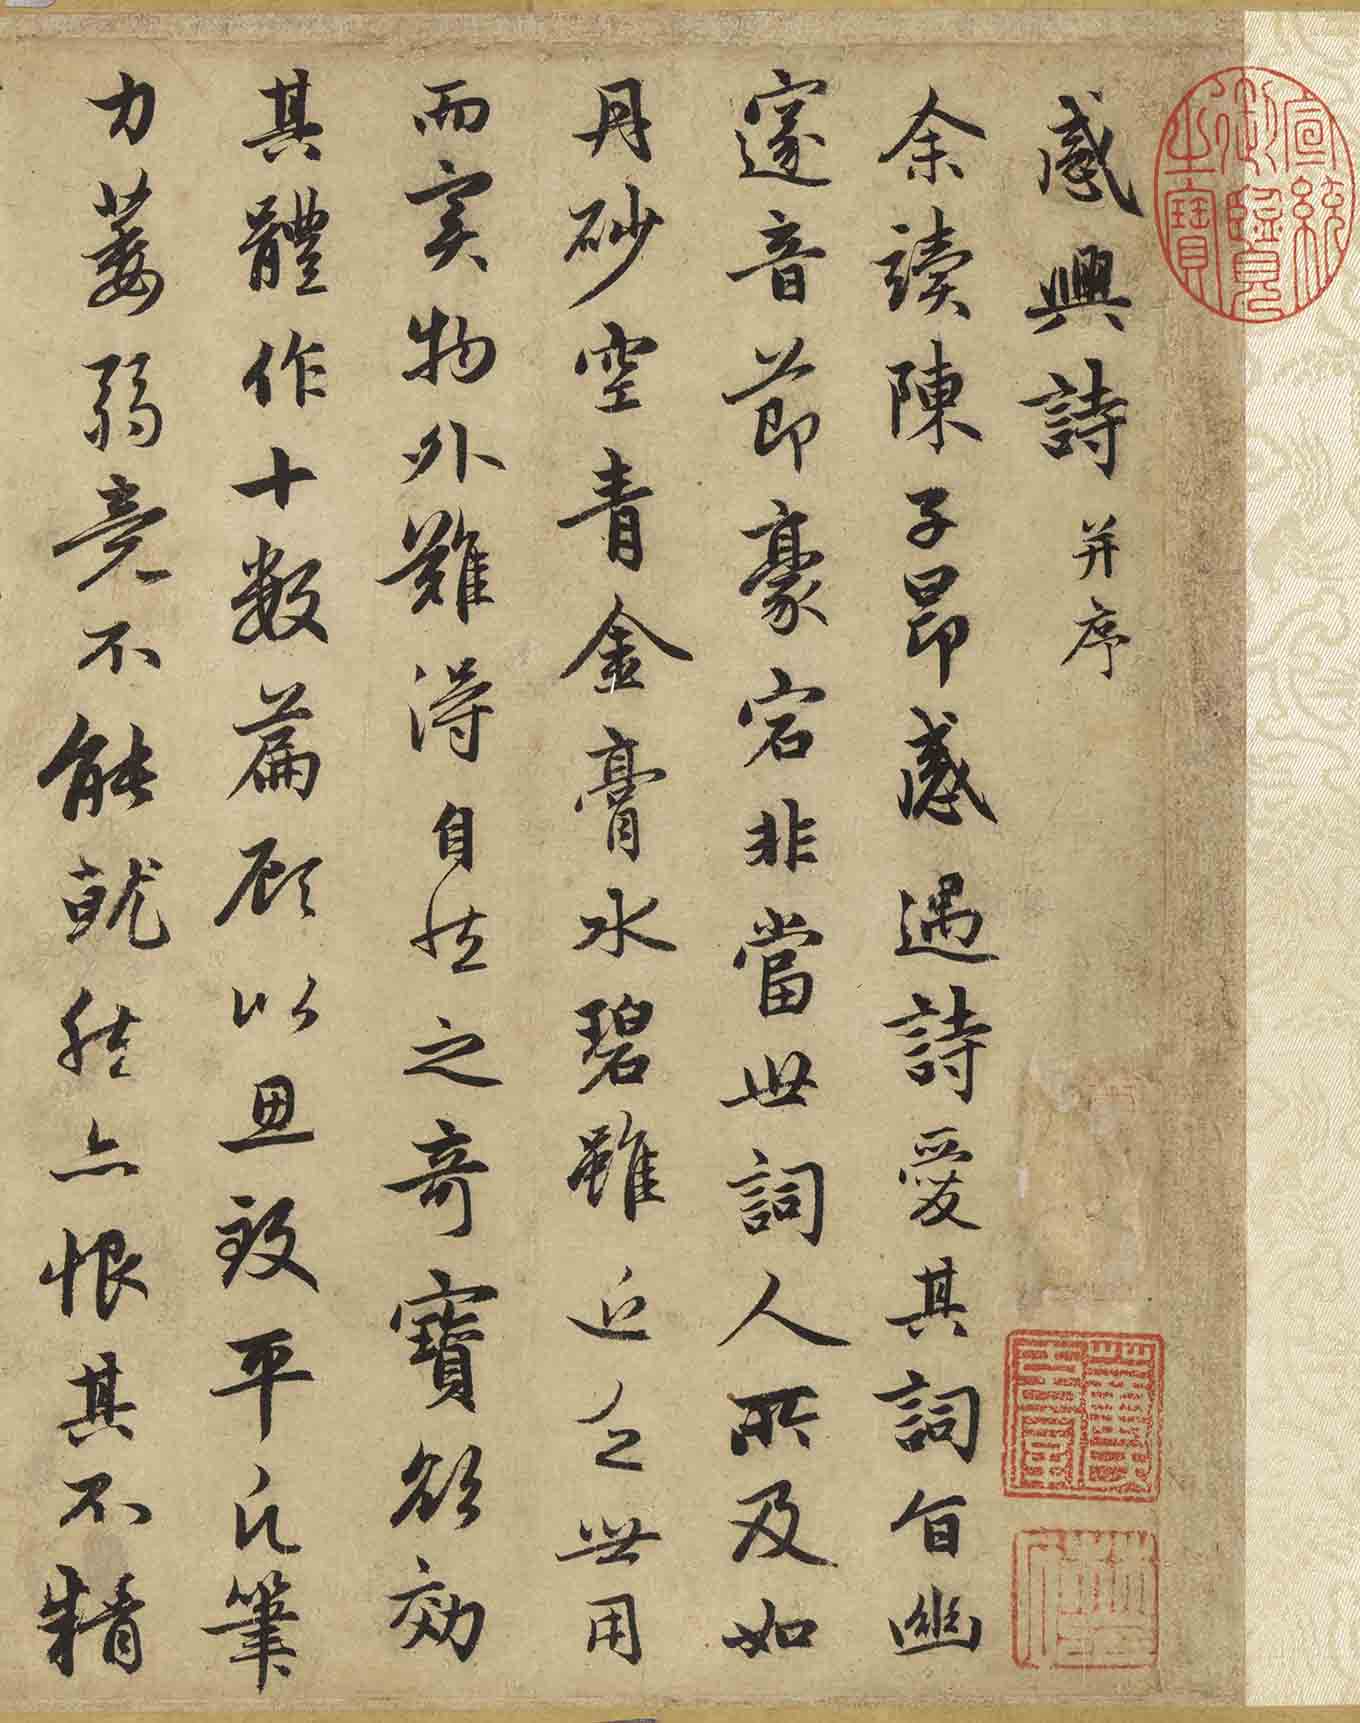 感興詩并序
余讀陳子昂感遇詩愛其詞旨幽
邃音節豪宕非當世詞人所及如
丹砂空青金膏水碧雖近乏世用
而實物外難得自然之奇寶欲効
其體作十數篇顧以思致平凡筆
力萎弱竟不能就然亦恨其不精
宣統御覽之寶